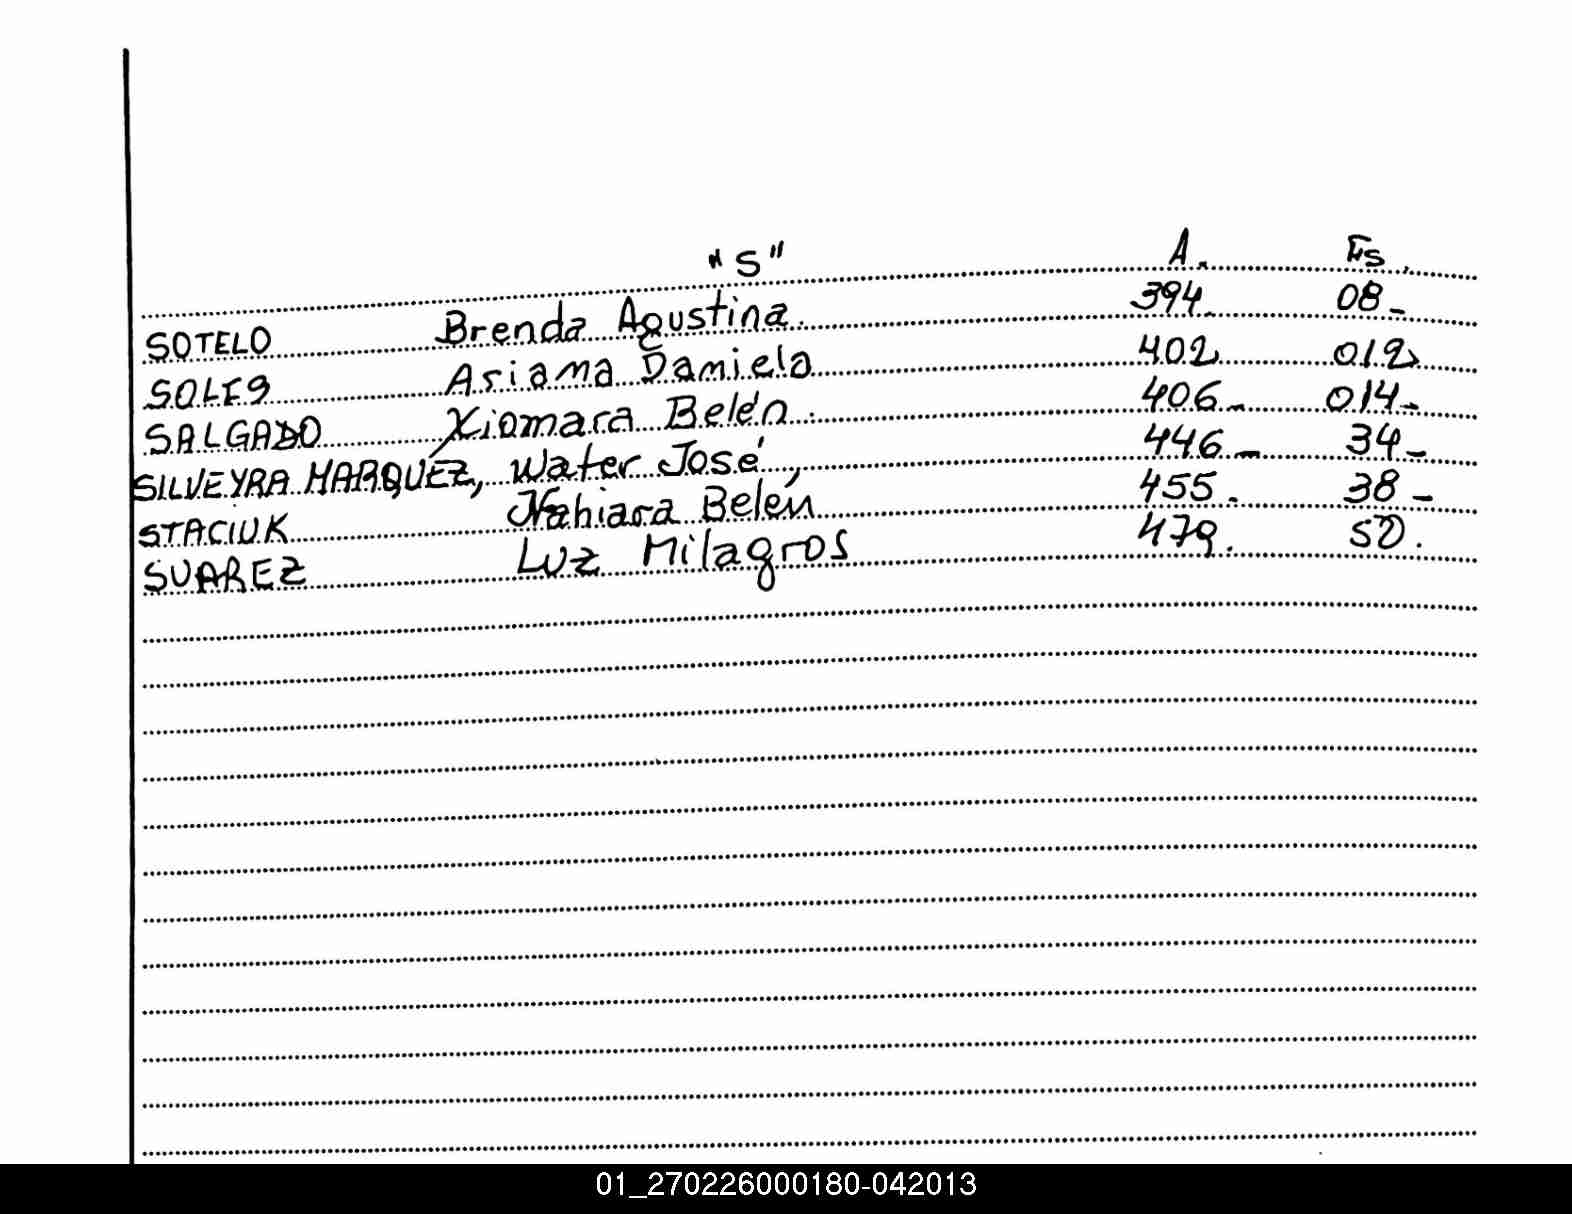 "S" A. Fs.
SOTELO Brenda Agustina. 394. 08-
SOLIS Ariama Damiela 402 012
SALGADO Xiomara Belén. 406- 014-
SILVEYRA MARQUEZ, Water José, 446- 34-
STACIUK Nahiara Belén 455. 38-
SUAREZ Luz Milagros 479. 50.
01_270226000180-042013